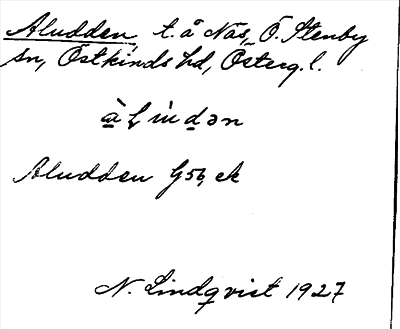 Aludden, t. å Näs, Ö. Stenby
sn, Östkinds hd, Österg. l.
à̱ḷùḏən
Aludden G56, ek
N. Lindqvist 1927